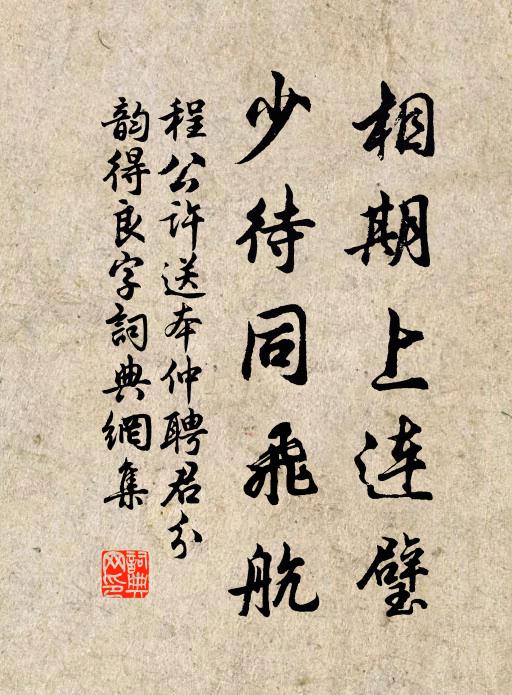 相期上连璧
少待同飛航
程公許送本仲聘君分
韵得良字詞典網集
詞典網印